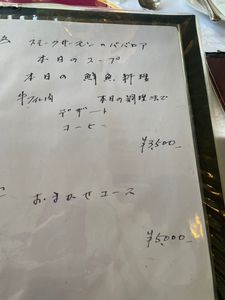 スモークサーモンのババロア
本日のスープ
本日の鮮魚料理
牛フィレ肉 本日の調理法で
デザート
コーヒー
¥3,500-
おまかせコース
¥5,000-